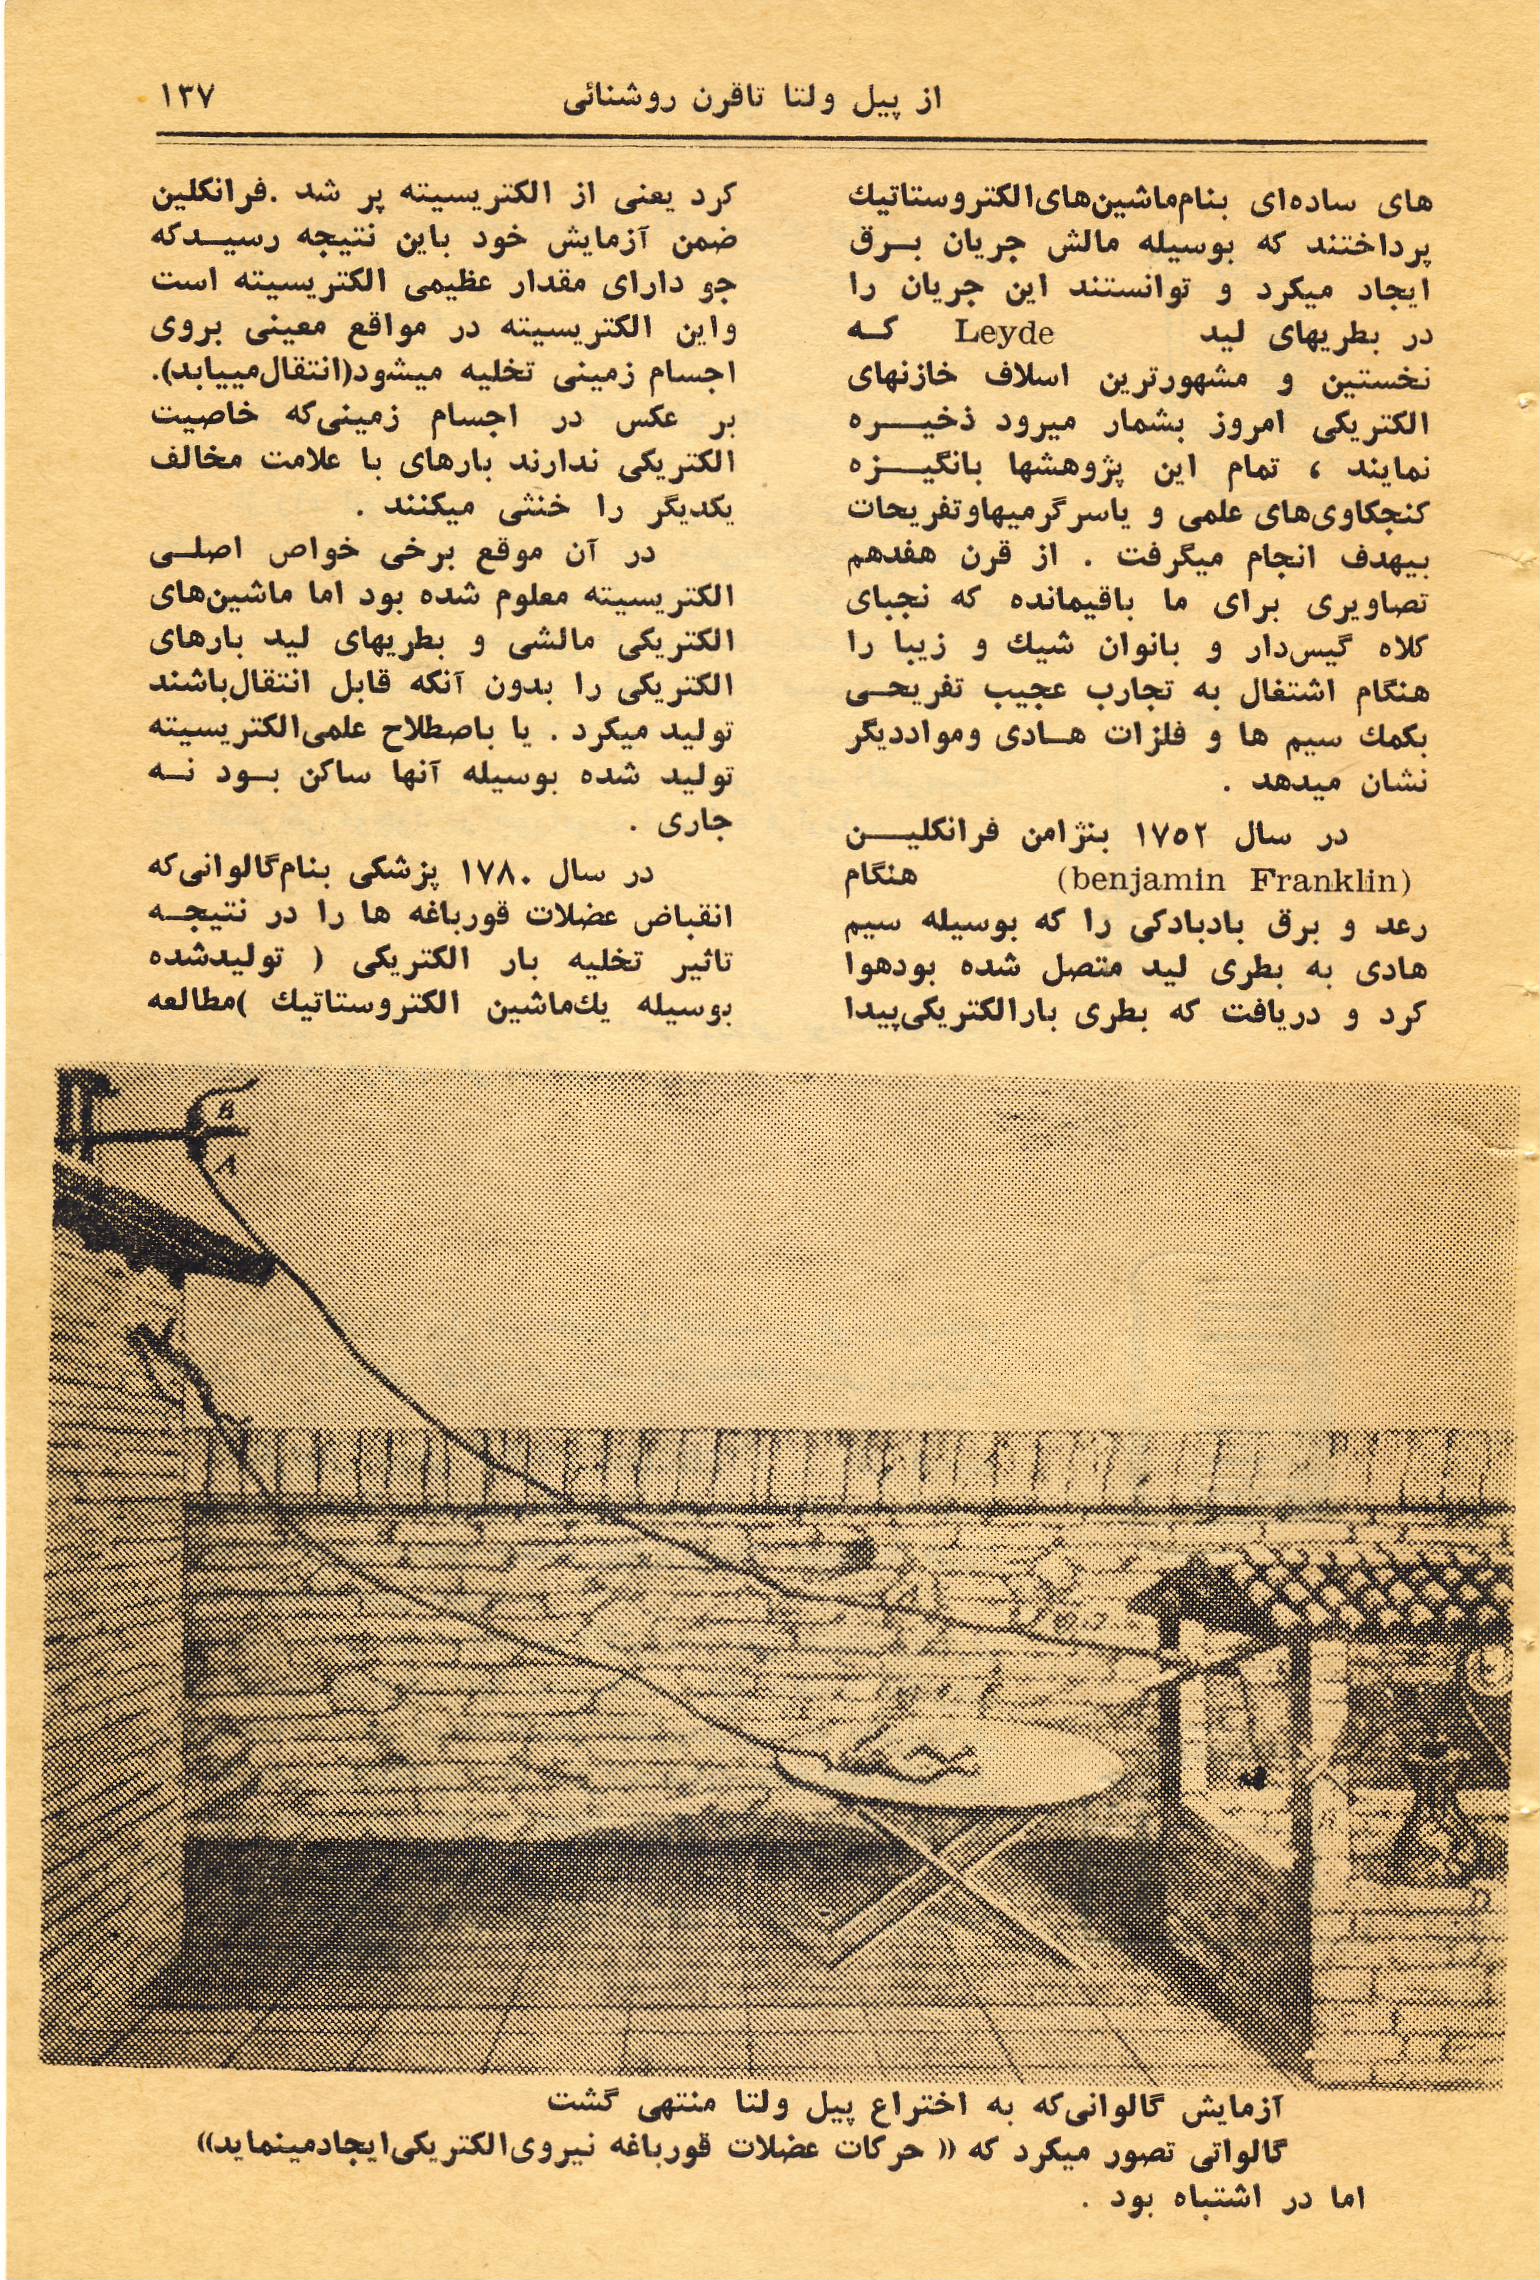 از پیل ولتا تاقرن روشنائی ۱۳۷
های ساده‌ای بنام‌ماشین‌های‌الکتروستاتیك
پرداختند که بوسیله مالش جریان بــرق
ایجاد میکرد و توانستند این جریان را
در بطریهای لید Leyde کــه
نخستین و مشهورترین اسلاف خازنهای
الکتریکی امروز بشمار میرود ذخیــــره
نمایند ، تمام این پژوهشها بانگیــــزه
کنجکاوی‌های علمی و یاسرگرمیهاوتفریحات
بیهدف انجام میگرفت . از قرن هفدهم
تصاویری برای ما باقیمانده که نجبای
کلاه گیس‌دار و بانوان شیك و زیبا را
هنگام اشتغال به تجارب عجیب تفریحــی
بکمك سیم ها و فلزات هــادی ومواددیگر
نشان میدهد .
در سال ۱۷۵۲ بنژامن فرانکلیــــن
(benjamin Franklin) هنگام
رعد و برق بادبادکی را که بوسیله سیم
هادی به بطری لید متصل شده بودهوا
کرد و دریافت که بطری بارالکتریکی‌پیدا
کرد یعنی از الکتریسیته پر شد .فرانکلین
ضمن آزمایش خود باین نتیجه رسیــدکه
جو دارای مقدار عظیمی الکتریسیته است
واین الکتریسیته در مواقع معینی بروی
اجسام زمینی تخلیه میشود(انتقال‌مییابد).
بر عکس در اجسام زمینی‌که خاصیت
الکتریکی ندارند بارهای با علامت مخالف
یکدیگر را خنثی میکنند .
در آن موقع برخی خواص اصلــی
الکتریسیته معلوم شده بود اما ماشین‌های
الکتریکی مالشی و بطریهای لید بارهای
الکتریکی را بدون آنکه قابل انتقال‌باشند
تولید میکرد . یا باصطلاح علمی‌الکتریسیته
تولید شده بوسیله آنها ساکن بــود نــه
جاری .
در سال ۱۷۸۰ پزشکی بنام‌گالوانی‌که
انقباض عضلات قورباغه ها را در نتیجــه
تاثیر تخلیه بار الکتریکی ( تولیدشده
بوسیله یك‌ماشین الکتروستاتیك )مطالعه
B
A
آزمایش گالوانی‌که به اختراع پیل ولتا منتهی گشت
گالواتی تصور میکرد که (( حرکات عضلات قورباغه نیروی‌الکتریکی‌ایجادمینماید))
اما در اشتباه بود .